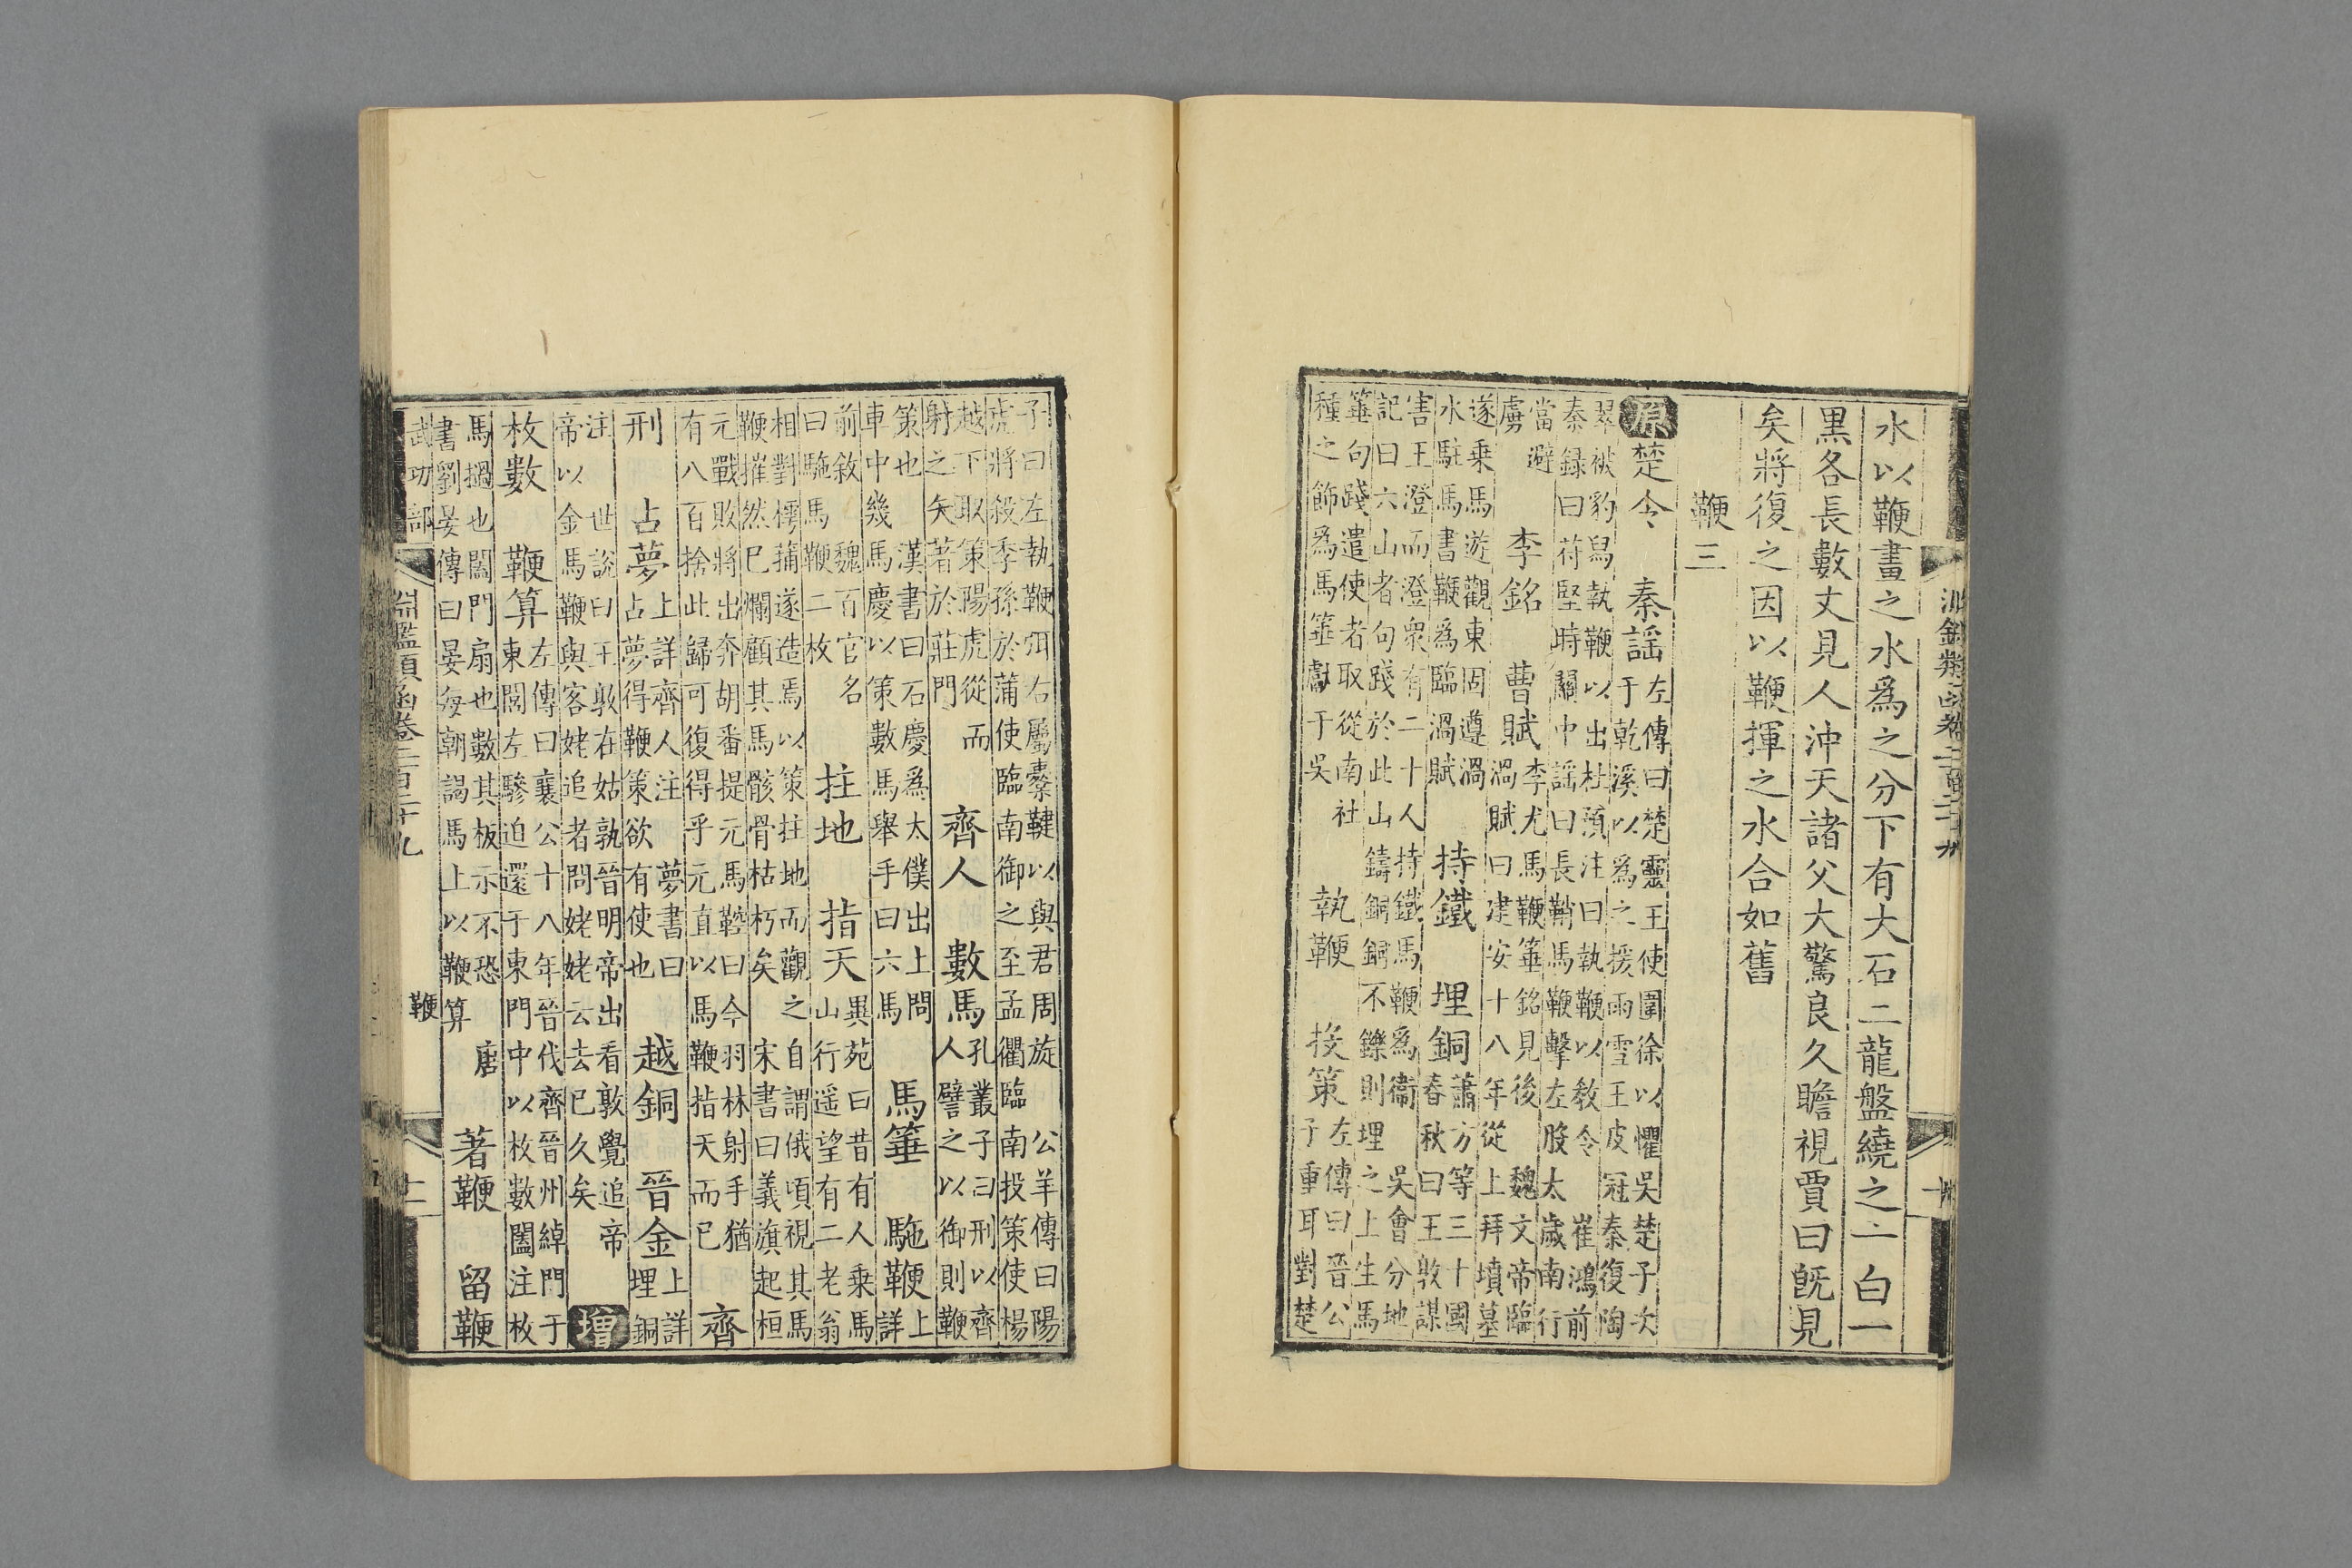 水以鞭畫之水爲之分下有大石二龍盤繞之一白一
黑各長數丈見人沖天諸父大驚良久瞻視賈曰旣見
矣將復之因以鞭揮之水合如舊
鞭三
原楚令 秦謡左傳曰楚靈王使圍徐以懼吳楚子次于乾溪以爲之援雨雪王皮冠秦復陶
翠被豹舄執鞭以出杜預注曰執鞭以敎令 崔鴻前秦録曰苻堅時關中謡曰長鞘馬鞭擊左股太歲南行
當避虜 李銘 曹賦李尤馬鞭箠銘見後 魏文帝臨渦賦曰建安十八年從上拜墳墓
遂乗馬遊觀東園遵渦水駐馬書鞭爲臨渦賦 持鐵 埋銅蕭方等三十國春秋曰王敦謀
害王澄而澄衆有二十人持鐵馬鞭爲衞 吳會分地記曰六山者句踐於此山鑄銅銅不鑠則埋之上生馬
箠句踐遣使者取從南社種之飾爲馬箠獻于吳 執鞭 投策左傳曰晉公子重耳對楚
子曰左執鞭弭右屬櫜鞬以與君周旋 公羊傳曰陽虎將殺季孫於蒲使臨南御之至孟衢臨南投策使楊
越下取策陽虎從而射之矢著於莊門 齊人 數馬孔叢子曰刑以齊人譬之以御則鞭
策也 漢書曰石慶爲太僕出上問車中幾馬慶以策數馬舉手曰六馬 馬箠 駞鞭上詳
前敘 魏百官名曰駞馬鞭二枚 拄地 指天異苑曰昔有人乗馬山行遥望有二老翁
相對樗蒱遂造焉以策拄地而觀之自謂俄頃視其馬鞭摧然已爛顧其馬骸骨枯朽矣 宋書曰義旗起桓
元戰敗將出奔胡番提元馬鞚曰今羽林射手猶有八百捨此歸可復得乎元直以馬鞭指天而已 齊
刑 占夢上詳齊人注 夢書曰占夢得鞭策欲有使也 越銅 晉金上詳埋銅
注 世說曰王敦在姑孰晉明帝出看敦覺追帝帝以金馬鞭與客姥追者問姥姥云去已久矣 增
枚數 鞭算左傳曰襄公十八年晉伐齊晉州綽門于東閭左驂迫還于東門中以枚數闔注枚
馬撾也闔門扇也數其板示不恐 唐書劉晏傳曰晏每朝謁馬上以鞭算 著鞭 留鞭
武功部 淵鑑類函卷二百二十九 鞭